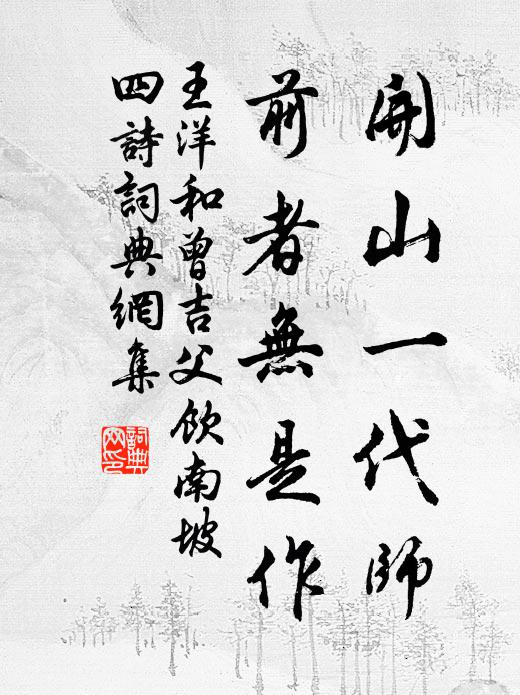 開山一代師
前者無是作
王洋和曾吉父飲南坡
四詩詞典網集
詞典網印